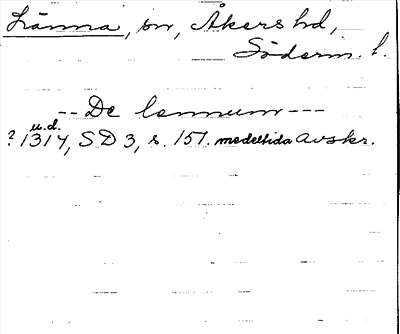 Länna, sn, Åkers hd,
Söderm. l.
-- De lennum ---
u.d.
? 1314, SD 3, s. 151. medeltida Avskr.